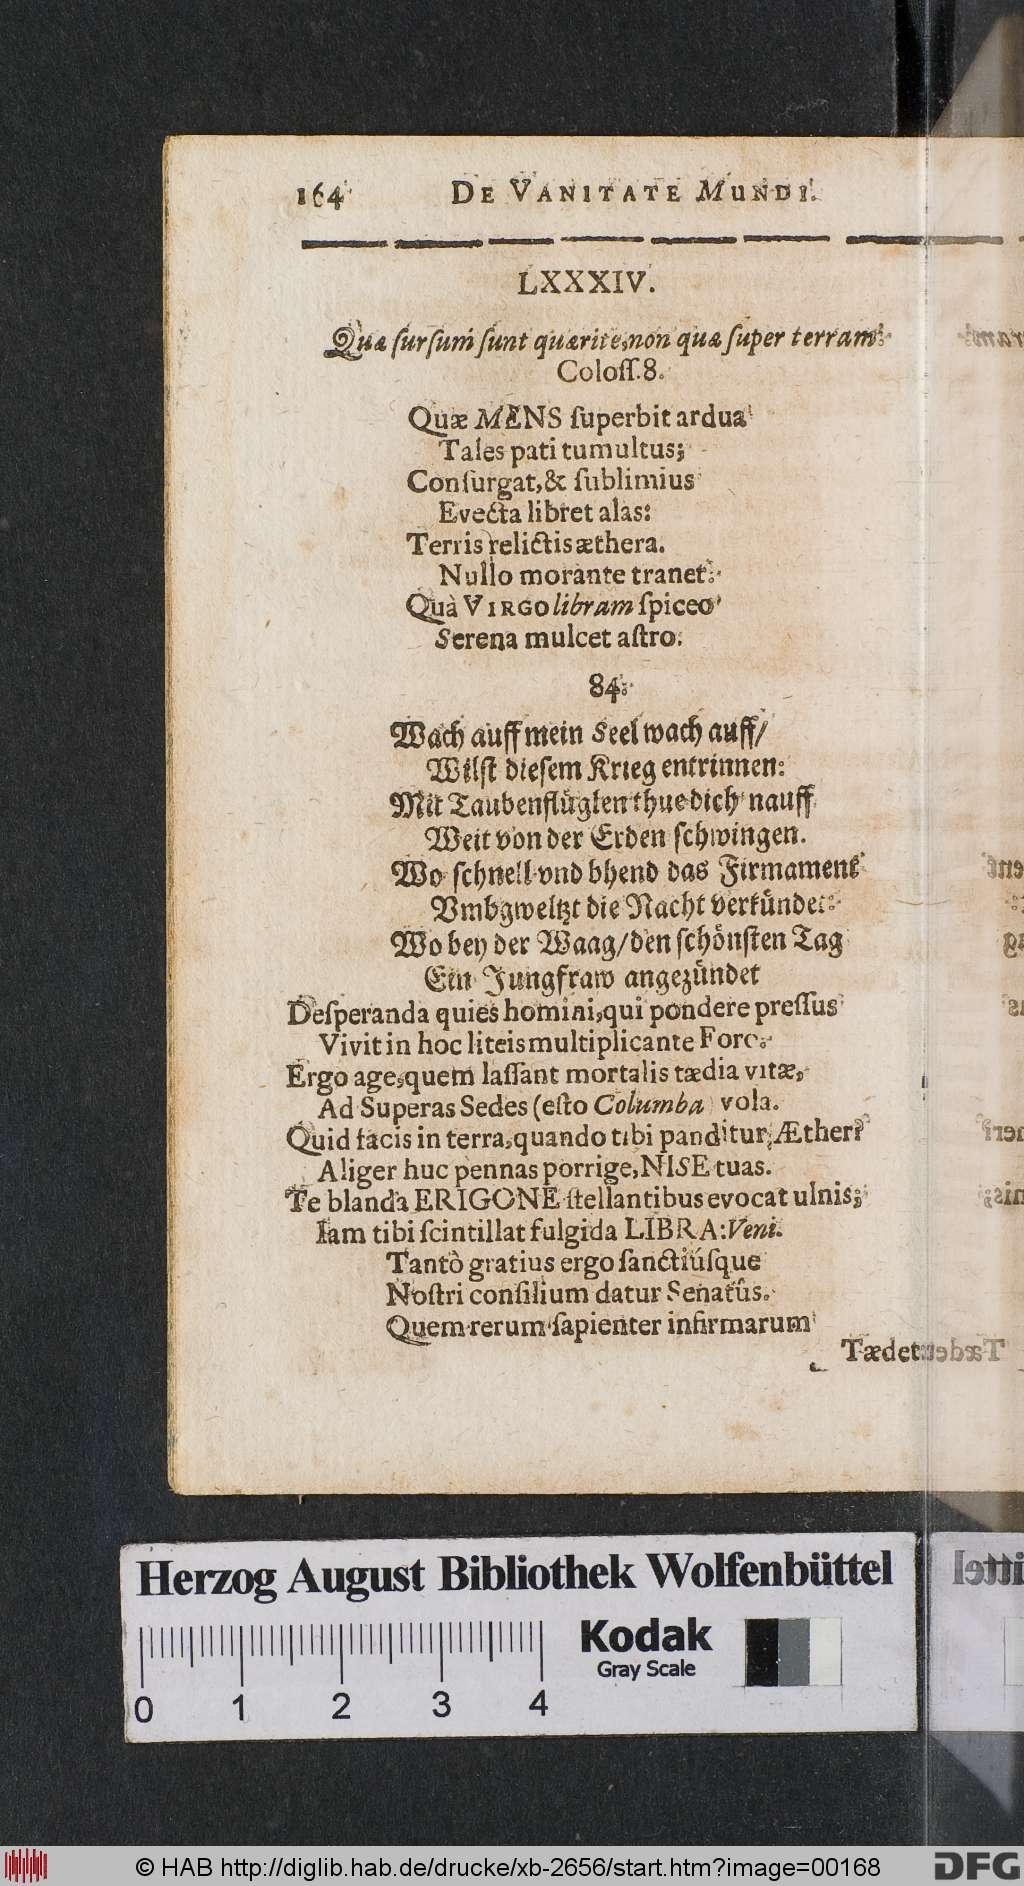 164 DE VANITATE MUNDI.
LXXXIV.
Quæ ſurſum ſunt quærite, non quæ ſuper terram.
Coloſſ. 8.
Quæ MENS ſuperbit ardua
Tales pati tumultus;
Conſurgat, & ſublimius
Evecta libret alas:
Terris relictis æthera.
Nullo morante tranet.
Quà VIRGO libram ſpiceo
Serena mulcet aſtro.
84.
Wach auff mein Seel wach auff/
Wilſt dieſem Krieg entrinnen:
Mit Taubenflüglen thue dich nauff
Weit von der Erden ſchwingen.
Wo ſchnell vnd bhend das Firmament
Vmbgweltzt die Nacht verkündet:
Wo bey der Waag/den ſchönſten Tag
Ein Jungfraw angezündet
Deſperanda quies homini, qui pondere preſſus
Vivit in hoc liteis multiplicante Foro.
Ergo age, quem laſſant mortalis tædia vitæ,
Ad Superas Sedes (eſto Columba) vola.
Quid facis in terra, quando tibi panditur, Ætheri
Aliger huc pennas porrige, NISE tuas.
Te blanda ERIGONE ſtellantibus evocat ulnis;
Iam tibi ſcintillat fulgida LIBRA: Veni.
Tantò gratius ergo ſanctiúſque
Noſtri conſilium datur Senatûs.
Quem rerum ſapienter infirmarum
Tædet
Herzog August Bibliothek Wolfenbüttel
Kodak
Gray Scale
0 1 2 3 4
© HAB http://diglib.hab.de/drucke/xb-2656/start.htm?image=00168
DFG